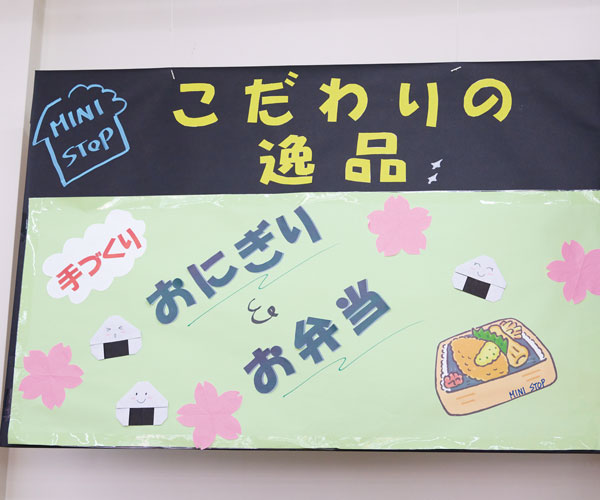 MINI
STOP
こだわりの
逸品
手づくり
おにぎり
&
お弁当
MINI STOP